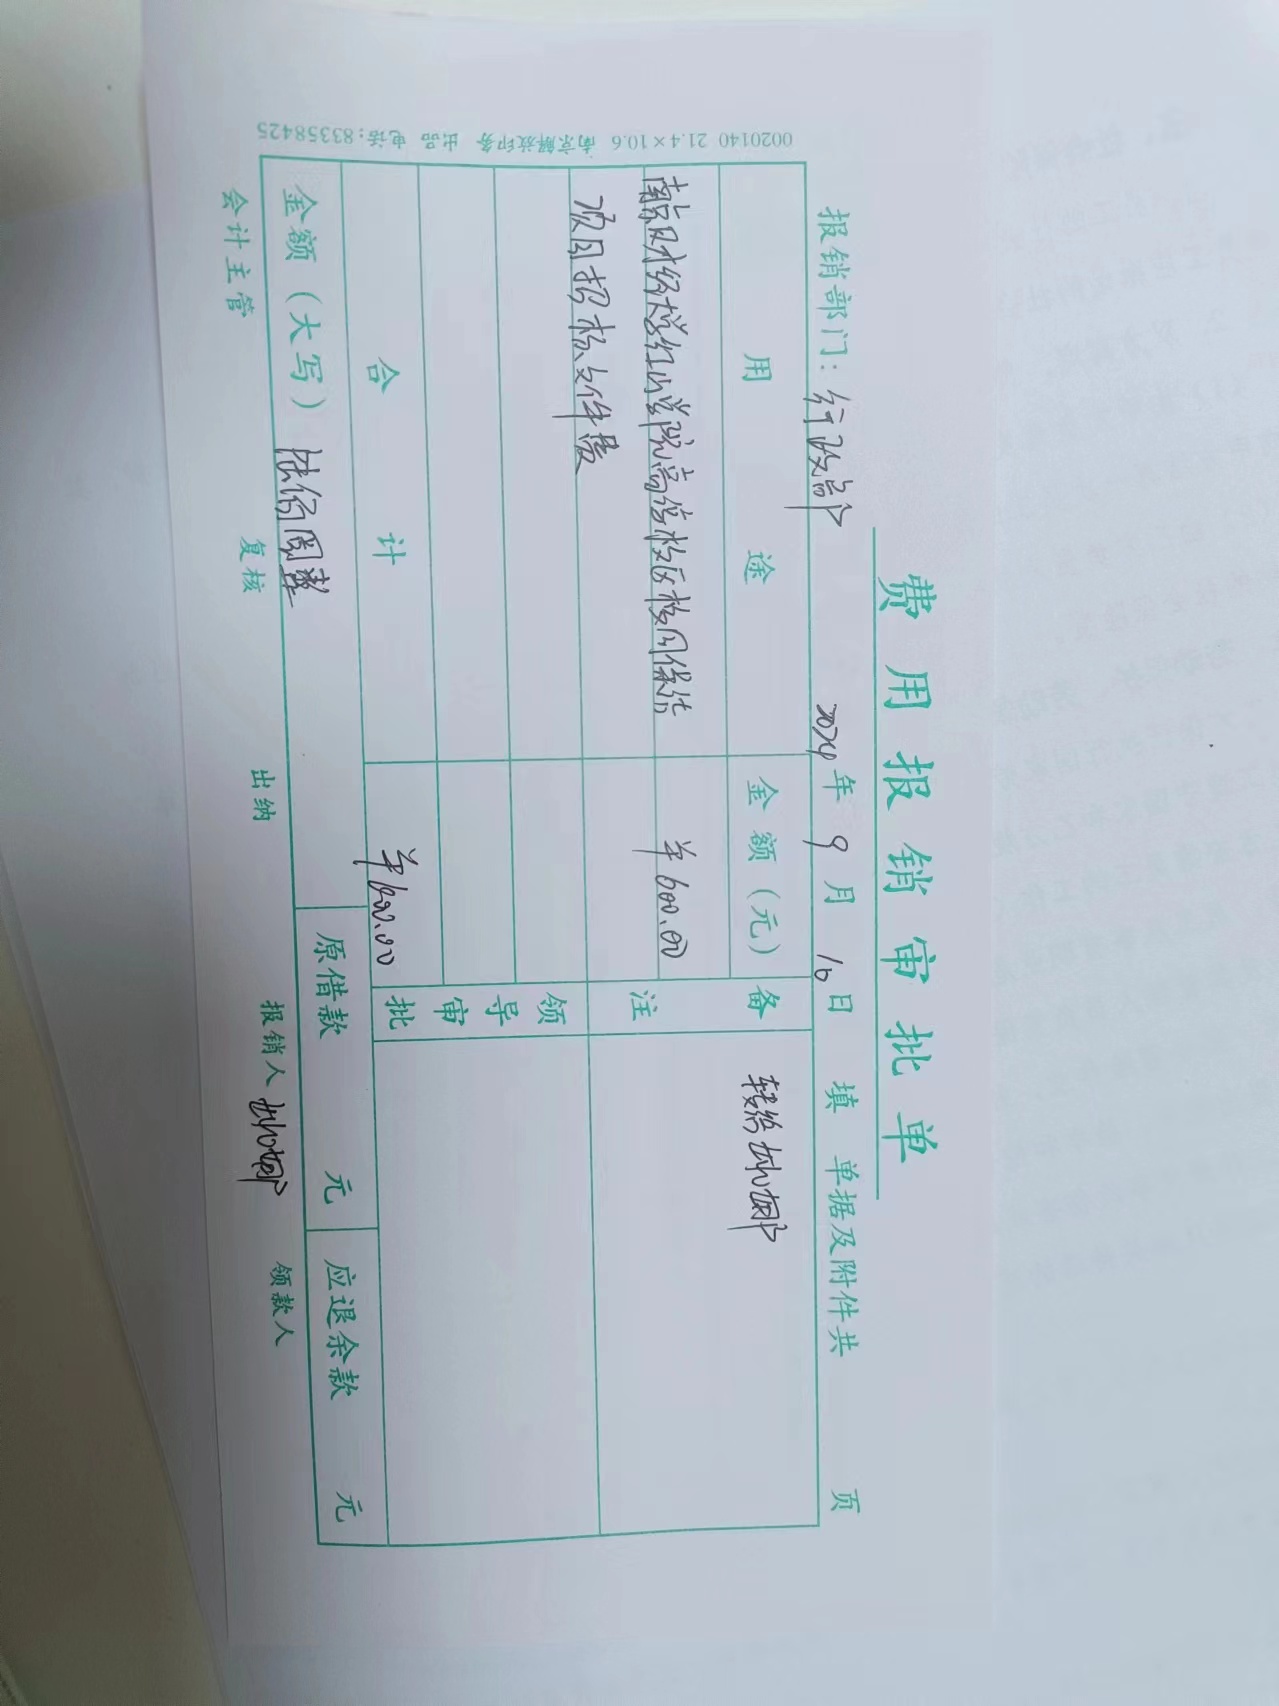 费用报销审批单
报销部门：行政部 2024年9月10日填 单据及附件共 页
用途 金额（元） 备注 转给
南京财经大学红山学院高淳校区校园保洁 ￥600.00
项目招标文件费
领导审批
合计 ￥600.00
金额（大写）陆佰圆整 原借款 元 应退余款 元
会计主管 复核 出纳 报销人 领款人
0020140 21.4×10.6 南京解放印务 出品 电话：83358425